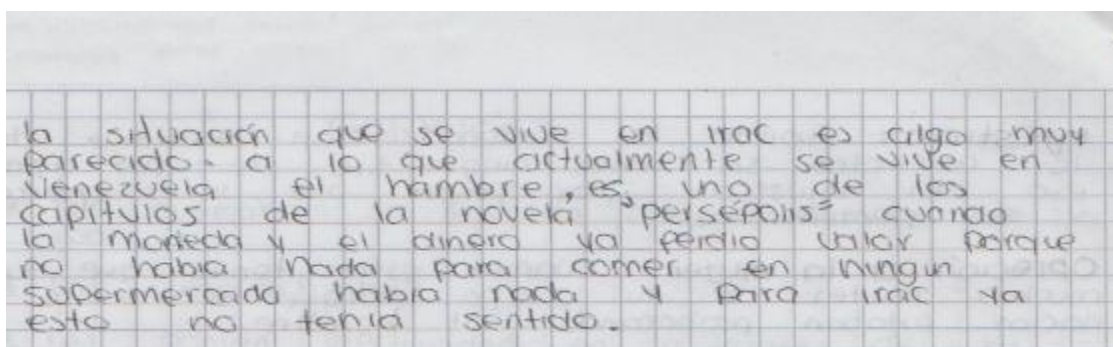 la situación que se vive en irac es algo muy
parecido a lo que actualmente se vive en
Venezuela el hambre, es, uno de los
capitulos de la novela "persépolis" cuando
la moneda y el dinero ya perdio valor porque
no habia nada para comer en ningun
supermercado habia nada y para irac ya
esto no tenia sentido.